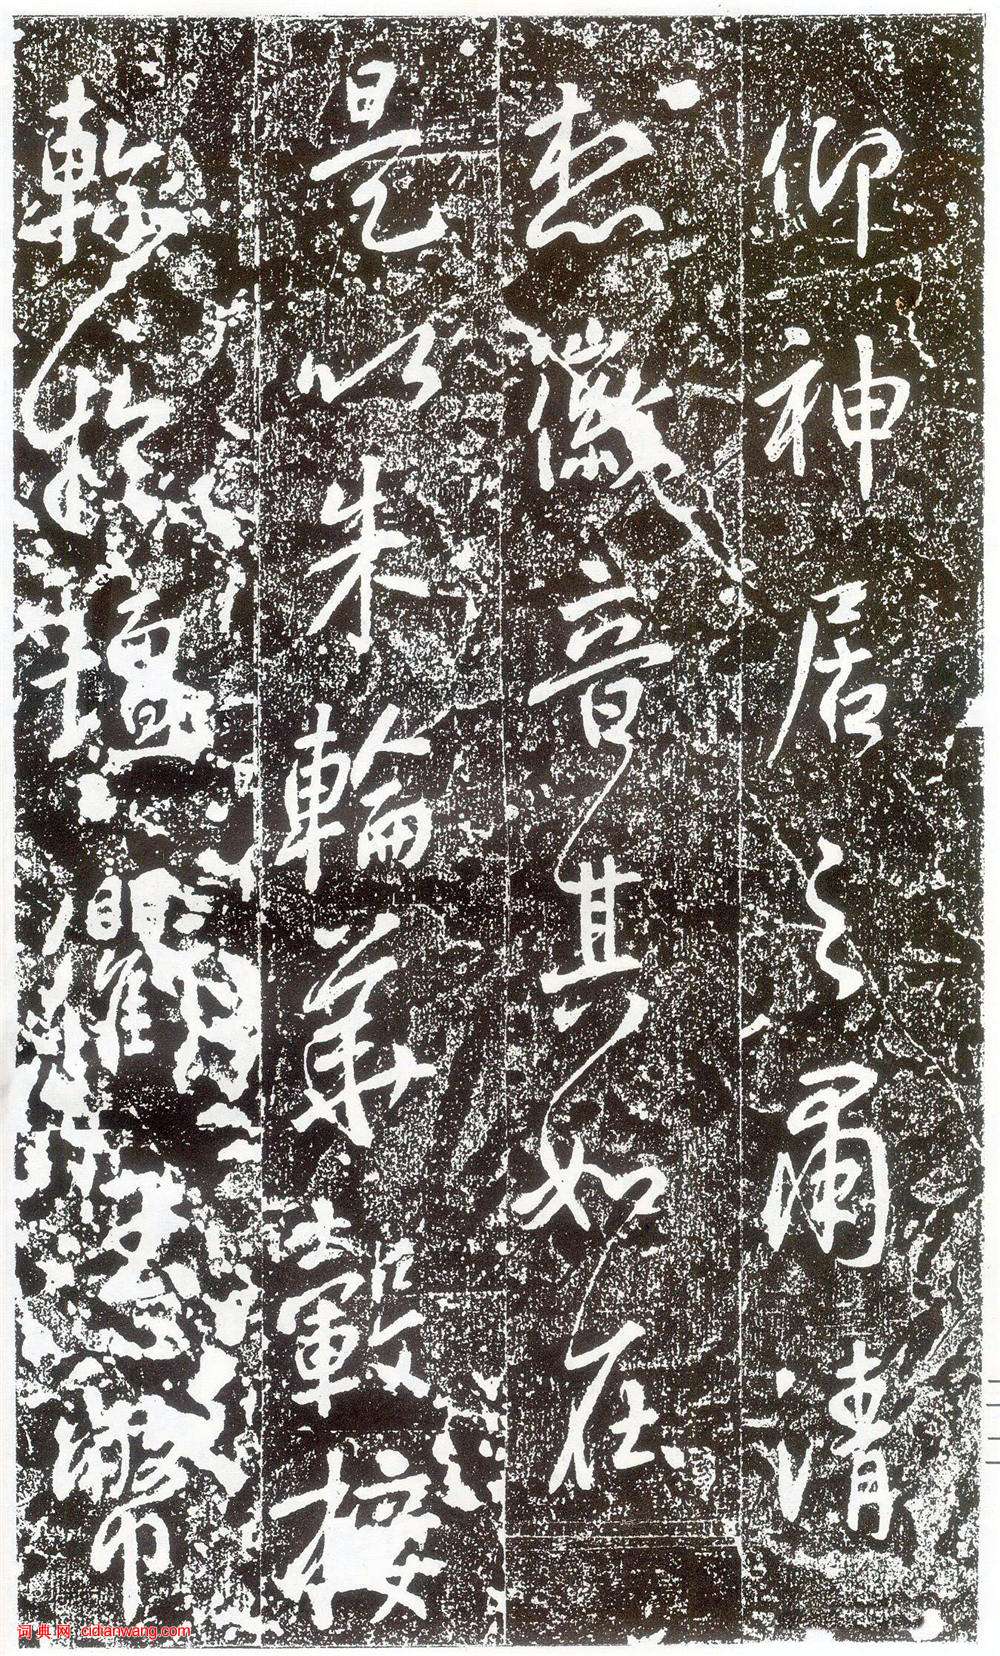 仰神居之肅清
想徽音其如在
是以朱輪華轂接
軫於壇衢玉幣
词典网 cidianwang.com